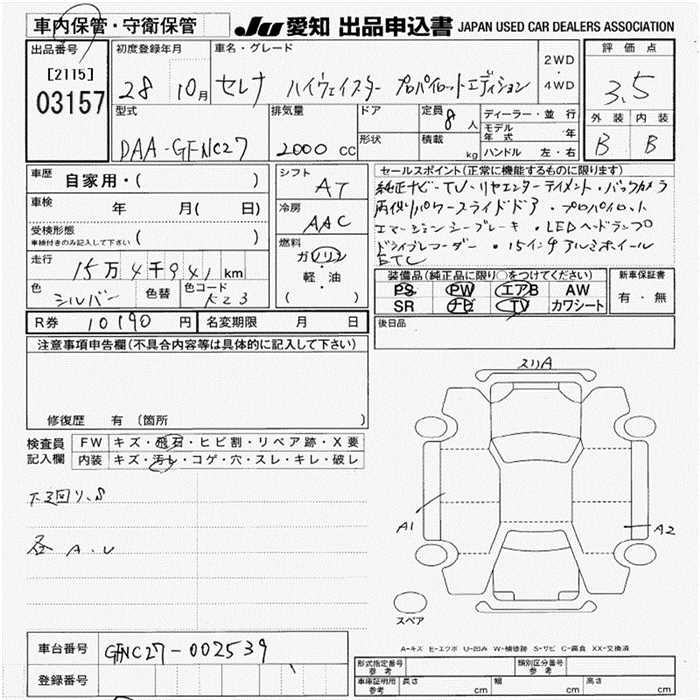 車内保管・守衛保管
JU 愛知 出品申込書 JAPAN USED CAR DEALERS ASSOCIATION
出品番号
[2115]
03157
初度登録年月
28 10月
車名・グレード
セレナ ハイウェイスター プロパイロットエディション
2WD
4WD
評価点
3.5
外装 内装
B B
型式
DAA-GFNC27
排気量
2000 cc
ドア
形状
定員
8人
積載
kg
ディーラー・並行
モデル年式 年
ハンドル 左・右
車歴
自家用・( )
車検 年 月( 日)
受検形態
車検付きのみ記入して下さい ( )
走行
15万4千941 km
色
シルバー
色替
色コード
K23
シフト
AT
冷房
AAC
燃料
ガソリン
軽・油
( )
セールスポイント(正常に機能するものに限ります)
純正ナビ・TV・リヤエンターテイメント・バックカメラ
両側パワースライドドア・プロパイロット
エマージェンシーブレーキ・LEDヘッドランプ
ドライブレコーダー・15インチアルミホイール
ETC
装備品(純正品に限り○をつけてください)
PS PW エアB AW
SR ナビ TV カワシート
新車保証書
有・無
R券 10190 円
名変期限 月 日
後日品
注意事項申告欄(不具合内容等は具体的に記入して下さい)
修復歴 有 (箇所 )
検査員
記入欄
FW キズ・飛石・ヒビ割・リペア跡・X要
内装 キズ・汚レ・コゲ・穴・スレ・キレ・破レ
下廻り、S
各 A.U
スリA
A1
A2
スペア
A-キズ E-エクボ U-凹み W-補修跡 S-サビ C-腐食 XX-交換済
車台番号 GFNC27-002539
登録番号
形式指定番号
参考
類別区分番号
参考
車庫証明用
参考
長さ cm 幅 cm 高さ cm